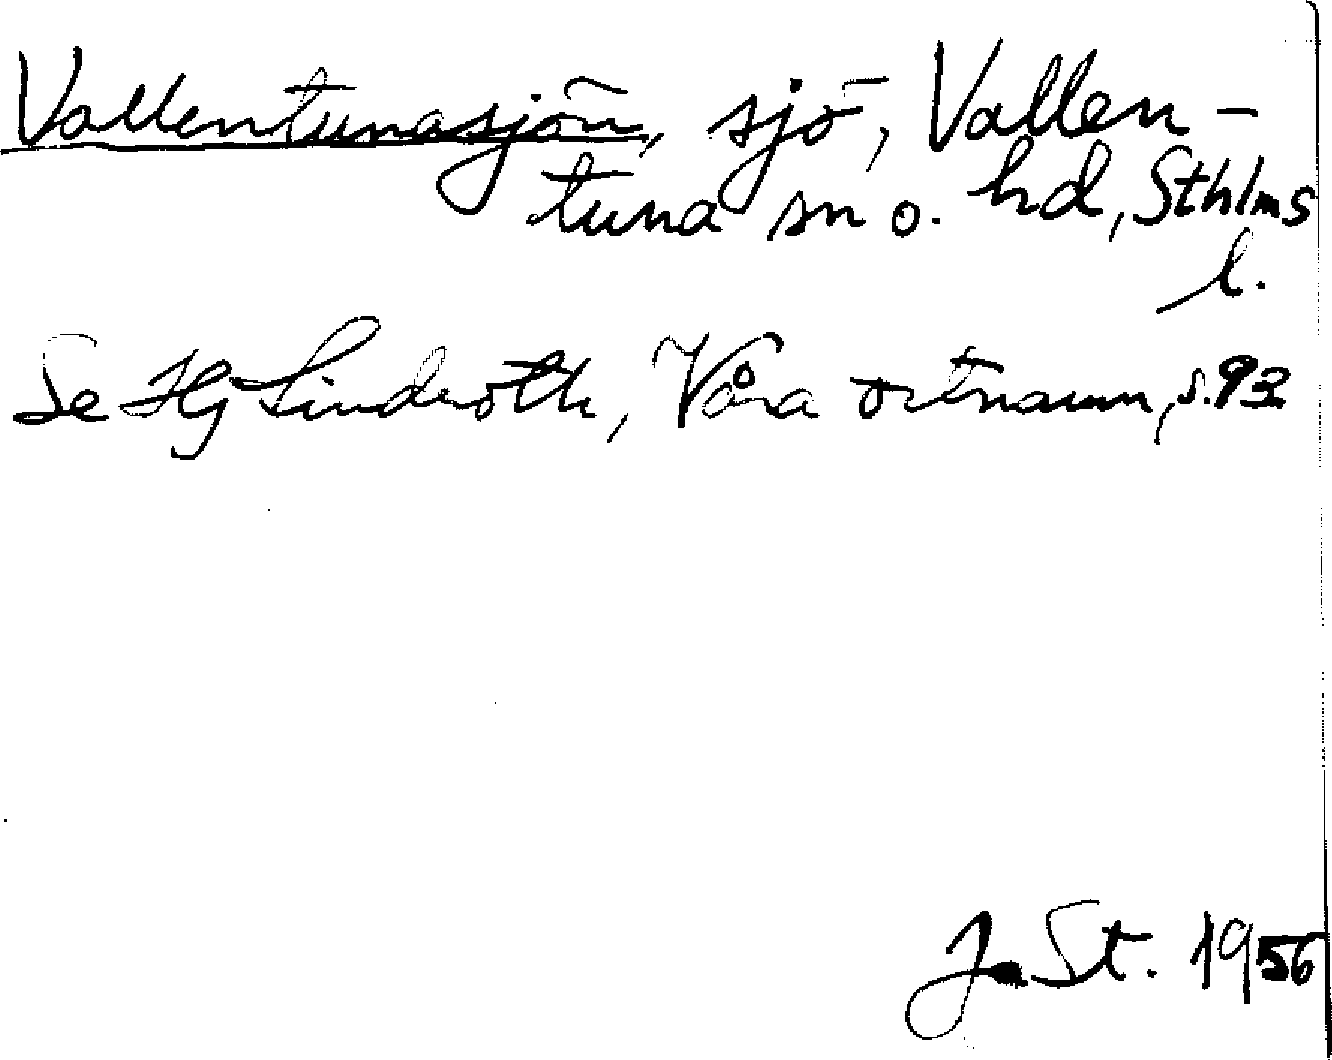 Vallentunasjön, sjö, Vallen-
tuna sn o. hd, Sthlms
l.
Se Hj Lindroth, Våra ortnamn, s. 93
J. St. 1956